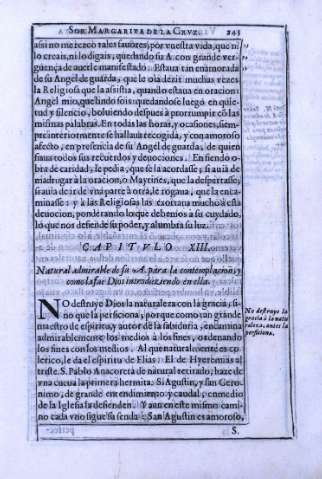 SOR MARGARITA DE LA CRVZ. 243
assi no merezco tales fauores, por vuestra vida, que ni
lo creais, ni lo digais, quedando su A. con grande ver-
guença de auerle manifestado. Estaua tan enamorada
de su Angel de guarda, que le oìa dezir muchas vezes
la Religiosa que la assistia, quando estaua en oracion:
Angel mio, quedando se luego en quie-
tud y silencio, boluiendo despues à prorrumpir cõ las
mismas palabras. En todas las horas, y ocasiones, siem-
pre interiormente se hallaua recogida, y con amoroso
afecto, en presencia de su Angel de guarda, de quien
fiaua todos sus recuerdos y deuociones. En siendo o-
bra de caridad, le pedia, que se la acordasse; si auia de
madrugar à la oracion, ò Maytines, que la despertasse,
si auia de ir de vna parte à otra, le rogaua, que la enca-
minasse: y à las Religiosas las exortaua mucho à esta
deuocion, ponderando lo que debemos à su cuydado,
lo que nos defiende su poder, y alumbra su luz.
CAPITVLO XIII.
Natural admirable de su A. para la contemplacion, y
como la fue Dios introduziendo en ella.
NO destruye Dios la naturaleza con la gracia, si-
no que la perficiona, porque como tan grande
maestro de espiritu, y autor de la sabiduria, encamina
admirablemente los medios à los fines, ordenando
los fines con los medios. Al que naturalmente es co-
lerico, le da el espiritu de Elias: El de Hyeremias al
triste. S. Pablo Anacoreta de natural retirado, haze de
vna cueua la primera hermita. Si Agustin, y san Gero-
nimo, de grande entendimiento y caudal, en medio
de la Iglesia la defienden. Y aun en este mismo cami-
no cada vno sigue su senda: San Agustin es amoroso,
S.
No destruye la
gracia à la natu
raleza, antes la
perficiona.